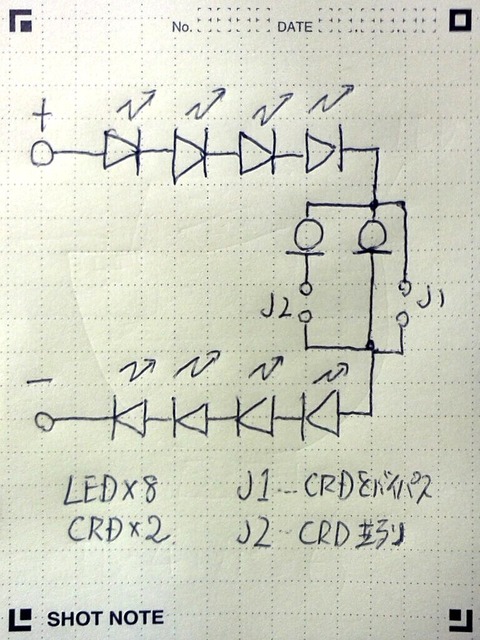 No. DATE
+
J2 J1
−
LED×8 J1…CRDをバイパス
CRD×2 J2…CRD並列
SHOT NOTE